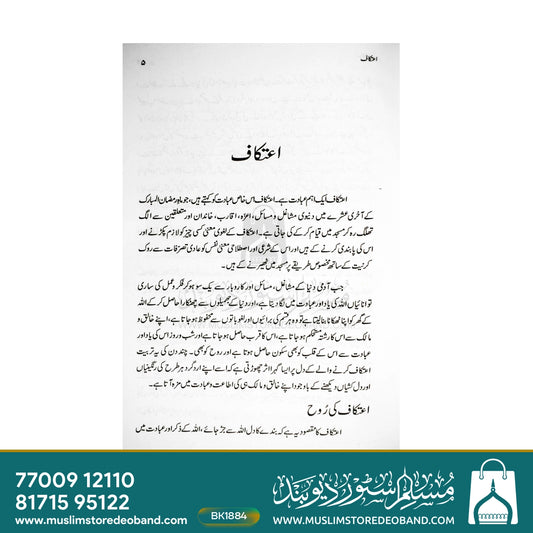 اعتکاف
۵
اعتکاف
اعتکاف ایک اہم عبادت ہے۔ اعتکاف اس خاص عبادت کو کہتے ہیں، جو ماہِ رمضان المبارک
کے آخری عشرے میں دنیوی مشاغل و مسائل، اعزہ، اقارب، خاندان اور متعلقین سے الگ
تھلگ رہ کر مسجد میں قیام کرکے کی جاتی ہے۔ اعتکاف کے لغوی معنیٰ کسی چیز کو لازم پکڑنے اور
اس کی پابندی کرنے کے ہیں اور اس کے شرعی اور اصطلاحی معنیٰ نفس کو عادی تصرفات سے روک
کر نیت کے ساتھ مخصوص طریقے پر مسجد میں ٹھیرنے کے ہیں۔
جب آدمی دنیا کے مشاغل، مسائل اور کاروبار سے یک سو ہو کر فکر و عمل کی ساری
توانائیاں اللہ کی یاد اور عبادت میں لگا دیتا ہے، اور دنیا کے جھمیلوں سے چھٹکارا حاصل کرکے اللہ
کے گھر کو اپنا ٹھکانا بنا لیتا ہے تو وہ ہر قسم کی برائیوں اور لغویات سے محفوظ ہو جاتا ہے، اپنے خالق و
مالک سے اس کا رشتہ مستحکم ہو جاتا ہے، اس کا قرب حاصل ہوتا ہے اور شب و روز اس کی یاد اور
عبادت سے اس کے قلب کو بھی سکون حاصل ہوتا ہے اور روح کو بھی۔ چند دن کی یہ تربیت
اعتکاف کرنے والے کے دل پر ایسا گہرا اثر چھوڑتی ہے کہ اسے اپنے ارد گرد ہر طرح کی رنگینیاں
اور دل کشیاں دیکھنے کے باوجود اپنے خالق و مالک ہی کی اطاعت و عبادت میں مزہ آتا ہے۔
اعتکاف کی رُوح
اعتکاف کا مقصود یہ ہے کہ بندے کا دل اللہ سے جڑ جائے، اللہ کے ذکر اور عبادت میں
77009 12110
81715 95122
www.muslimstoredeoband.com
BK1884
مسلم سٹور دیوبند
WWW.MUSLIMSTOREDEOBAND.COM